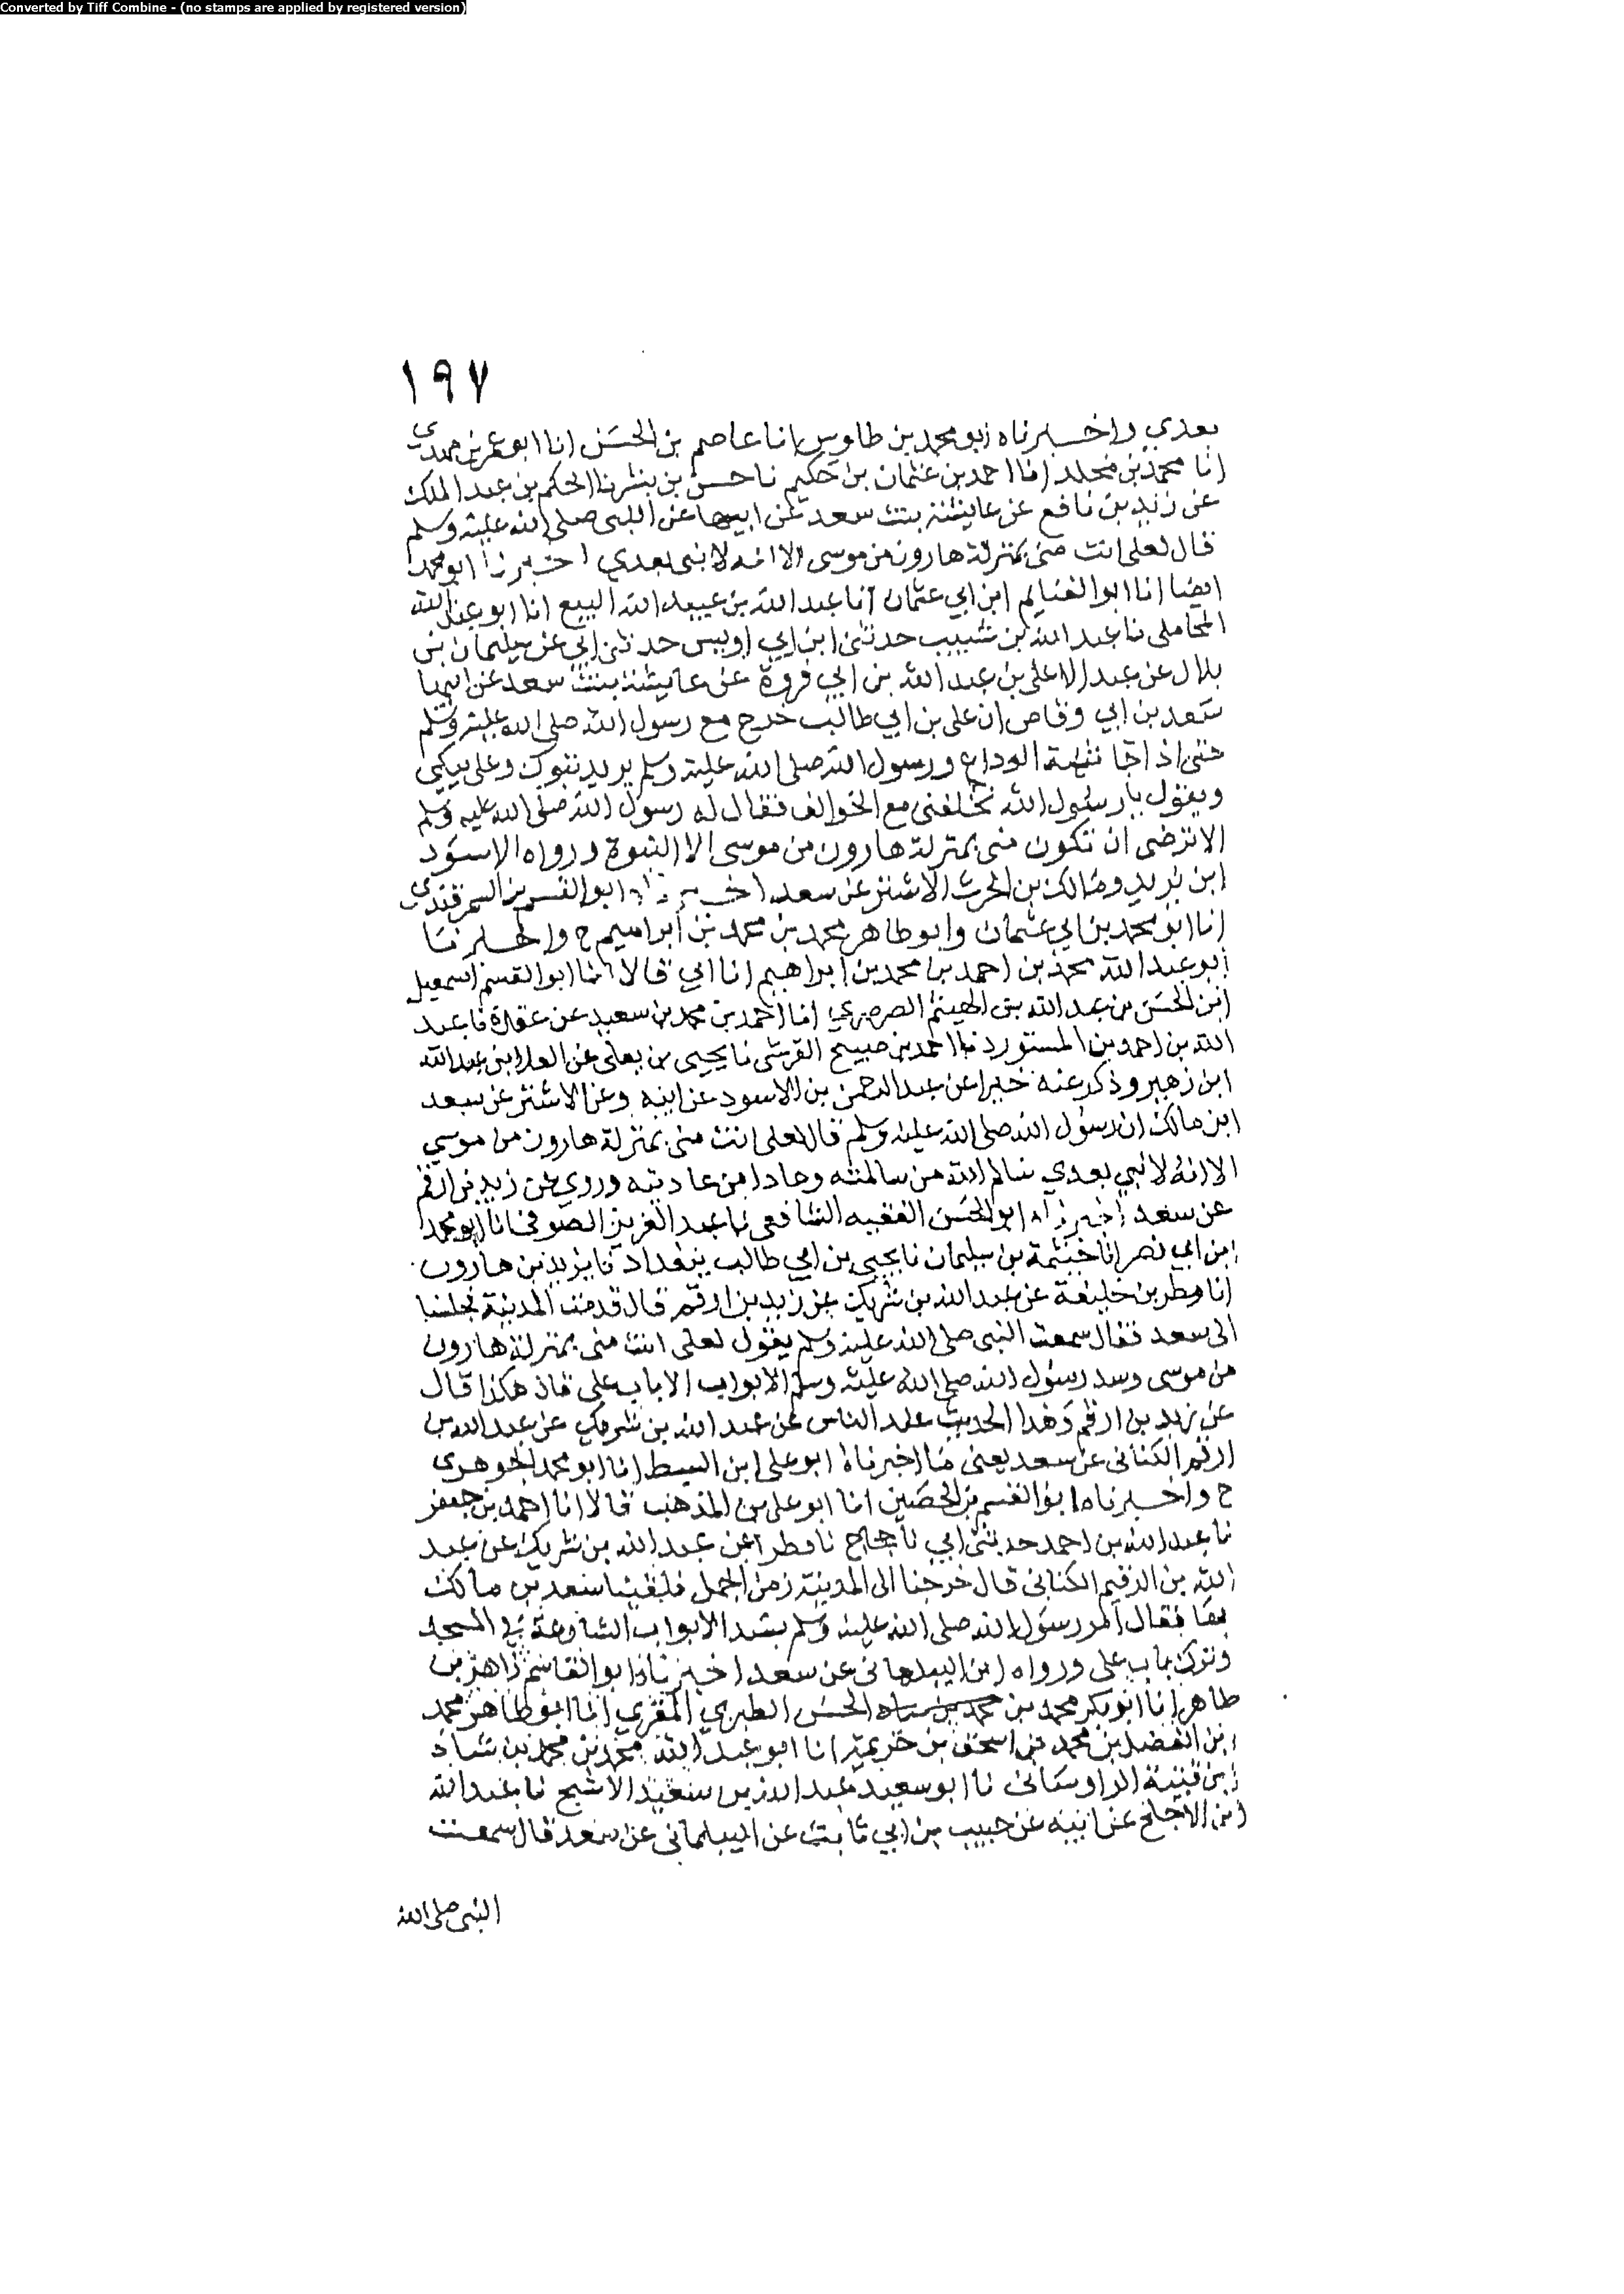 Converted by Tiff Combine - (no stamps are applied by registered version)
١٩٧
بعدي واخبرناه ابو محمد بن طاوس انا عاصم بن الحسن انا ابو عمر بن مهدي
انا محمد بن مخلد انا احمد بن عثمان بن حكيم نا حسن بن بشر نا الحكم بن عبد الملك
عن زيد بن نافع عن عايشة بنت سعد عن ابيها عن النبي صلى الله عليه وسلم
قال لعلي انت مني بمنزلة هارون من موسى الا انه لا نبي بعدي اخبرنا ابو محمد
ايضا انا ابو الغنايم ابن ابي عثمان انا عبد الله بن عبيد الله البيع انا ابو عبد الله
المحاملي نا عبد الله بن شبيب حدثني ابن ابي اويس حدثني ابي عن سليمان بن
بلال عن عبد الاعلى بن عبد الله بن ابي فروة عن عايشة بنت سعد عن ابيها
سعد بن ابي وقاص ان علي بن ابي طالب خرج مع رسول الله صلى الله عليه وسلم
حتى اذا جا ثنية الوداع ورسول الله صلى الله عليه وسلم يريد تبوك وعلي يبكي
ويقول يا رسول الله تخلفني مع الخوالف فقال له رسول الله صلى الله عليه وسلم
الا ترضى ان تكون مني بمنزلة هارون من موسى الا النبوة ورواه الاسود
ابن يزيد ومالك بن الحرث الاشتر عن سعد اخبرناه ابو القسم بن السمرقندي
انا ابو محمد بن ابي عثمان وابو طاهر محمد بن محمد بن ابراهيم ح واخبرنا
ابو عبد الله محمد بن احمد بن محمد بن ابراهيم انا ابي قالا انا ابو القسم اسمعيل
ابن الحسن بن عبد الله بن الهيثم الصرصري انا احمد بن محمد بن سعيد بن عقدة نا عبد
الله بن احمد بن المستورد نا احمد بن صبيح القرشي نا يحيى بن يعلى عن العلا بن عبد الله
ابن زهير وذكر عنه خيرا عن عبد الرحمن بن الاسود عن ابيه وعن الاشتر عن سعد
ابن مالك ان رسول الله صلى الله عليه وسلم قال لعلي انت مني بمنزلة هارون من موسي
الا انه لا نبي بعدي سالم الله من سالمته وعادا من عاديته وروي عن زيد بن ارقم
عن سعد اخبرناه ابو الحسن الفقيه الشافعي نا عبد العزيز الصوفي انا ابو محمد
ابن ابي نصر انا خيثمة بن سليمان نا يحيى بن ابي طالب ببغداد نا يزيد بن هارون
انا فطر بن خليفة عن عبد الله بن شريك عن زيد بن ارقم قال قدمت المدينة فجلسنا
الى سعد فقال سمعت النبي صلى الله عليه وسلم يقول لعلي انت مني بمنزلة هارون
من موسى وسد رسول الله صلى الله عليه وسلم الابواب الا باب علي هكذا قال
عن زيد بن ارقم وهذا الحديث عند الناس عن عبد الله بن شريك عن عبد الله بن
ارقم الكناني عن سعد يعني ما اخبرناه ابو علي ابن السبط انا ابو محمد الجوهري
ح واخبرناه ابو القسم بن الحصين انا ابو علي بن المذهب قالا انا احمد بن جعفر
نا عبد الله بن احمد حدثني ابي نا حجاج نا فطر عن عبد الله بن شريك عن عبد
الله بن الرقيم الكناني قال خرجنا الى المدينة زمن الجمل فلقينا سعد بن مالك
بها فقال امر رسول الله صلى الله عليه وسلم بسد الابواب الشارعة في المسجد
وترك باب علي ورواه ابن البيلماني عن سعد اخبرناه ابو القاسم زاهر بن
طاهر انا ابو بكر محمد بن الحسن الطبري المقري انا ابو طاهر محمد
ابن الفضل بن محمد بن اسحق بن خزيمة انا ابو عبد الله محمد بن محمد بن شاذ
ابن قتيبة الراوساني نا ابو سعيد عبد الله بن سعيد الاشج نا عبد الله
ابن الاجلح عن ابيه عن حبيب بن ابي ثابت عن البيلماني عن سعد قال سمعت
النبي صلى الله